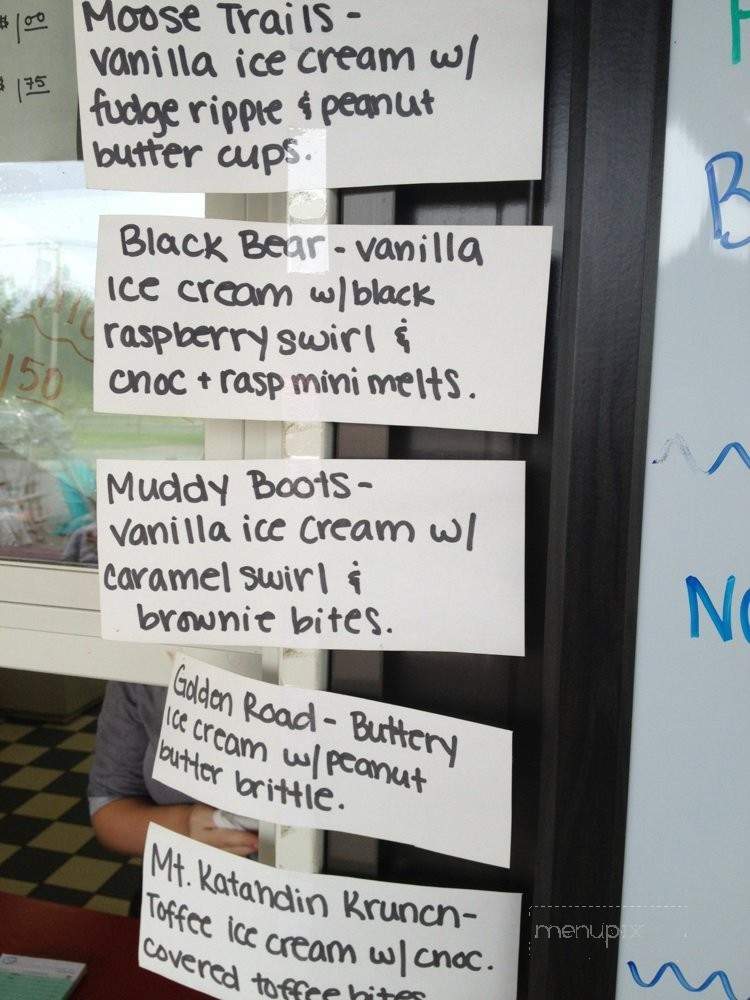 $ 1.00
$ 1.75
Moose Trails -
vanilla ice cream w/
fudge ripple & peanut
butter cups.
Black Bear - vanilla
ice cream w/ black
raspberry swirl &
choc + rasp mini melts.
Muddy Boots -
vanilla ice cream w/
caramel swirl &
brownie bites.
Golden Road - Buttery
ice cream w/ peanut
butter brittle.
Mt. Katahdin Krunch -
Toffee ice cream w/ choc.
covered toffee bites
B
NO
menupix